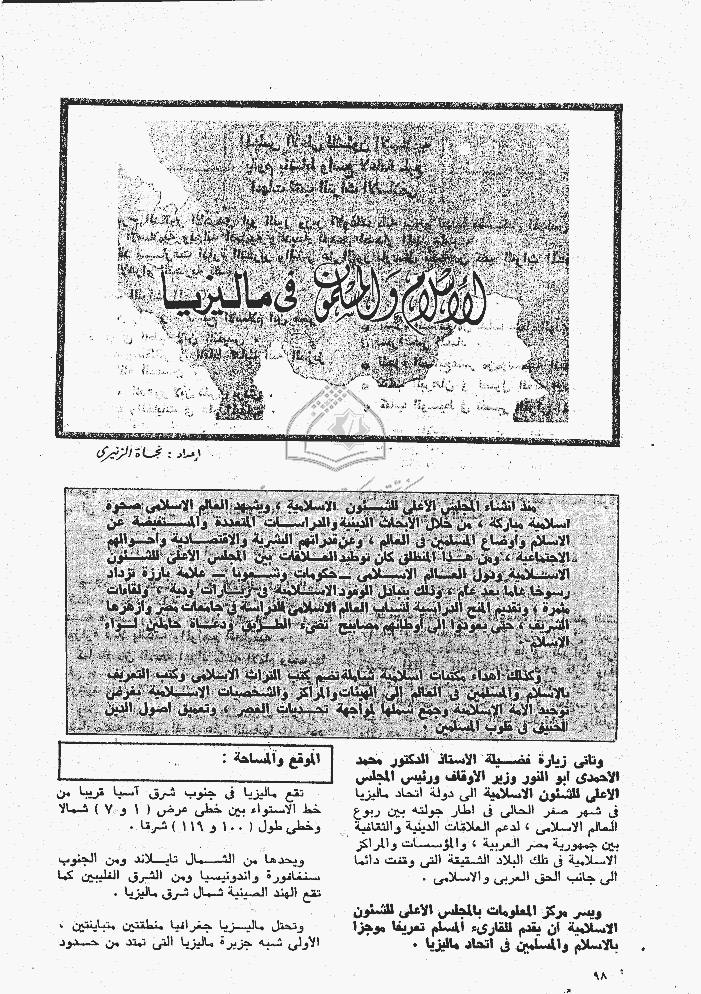 الإسلام والمسلمون فى ماليزيا
إعداد : نجاة الزنيرى
منذ انشاء المجلس الأعلى للشئون الاسلامية ، ويشهد العالم الاسلامى صحوة
اسلامية مباركة ، من خلال الأبحاث الدينية والدراسات المتعددة والمستفيضة عن
الاسلام وأوضاع المسلمين فى العالم ، وعن قدراتهم البشرية والاقتصادية وأحوالهم
الاجتماعية ، ومن هذا المنطلق كان توطيد العلاقات بين المجلس الأعلى للشئون
الاسلامية ودول العالم الاسلامى – حكومات وشعوبا – علامة بارزة تزداد
رسوخا عاما بعد عام ، وذلك بتبادل الوفود الاسلامية فى زيارات ودية ، ولقاءات
مثمرة ، وتقديم المنح الدراسية لشباب العالم الاسلامى للدراسة فى جامعات مصر وأزهرها
الشريف ، حتى يعودوا الى أوطانهم مصابيح تضىء الطريق ودعاة حاملين لواء
الاسلام .
وكذلك اهداء مكتبات اسلامية شاملة تضم كتب التراث الاسلامى وكتب التعريف
بالاسلام والمسلمين فى العالم الى الهيئات والمراكز والشخصيات الاسلامية بغرض
توحيد الأمة الاسلامية وجمع شملها لمواجهة تحديات العصر ، وتعميق أصول الدين
الحنيف فى قلوب المسلمين .
وتأتى زيارة فضيلة الأستاذ الدكتور محمد
الأحمدى أبو النور وزير الأوقاف ورئيس المجلس
الأعلى للشئون الاسلامية الى دولة اتحاد ماليزيا
فى شهر صفر الحالى فى اطار جولته بين ربوع
العالم الاسلامى ، لدعم العلاقات الدينية والثقافية
بين جمهورية مصر العربية ، والمؤسسات والمراكز
الاسلامية فى تلك البلاد الشقيقة التى وقفت دائما
الى جانب الحق العربى والاسلامى .
ويسر مركز المعلومات بالمجلس الأعلى للشئون
الاسلامية أن يقدم للقارىء المسلم تعريفا موجزا
بالاسلام والمسلمين فى اتحاد ماليزيا .
الموقع والمساحة :
تقع ماليزيا فى جنوب شرق آسيا قريبا من
خط الاستواء بين خطى عرض ( ١ و ٧ ) شمالا
وخطى طول ( ١٠٠ و ١١٩ ) شرقا .
ويحدها من الشمال تايلاند ومن الجنوب
سنغافورة واندونيسيا ومن الشرق الفلبين كما
تقع الهند الصينية شمال شرق ماليزيا .
وتحتل ماليزيا جغرافيا منطقتين متباينتين ،
الأولى شبه جزيرة ماليزيا التى تمتد من حدود
٩٨